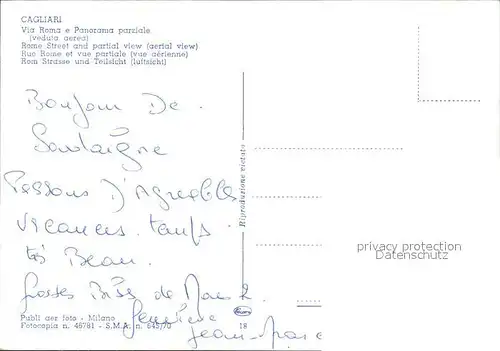 CAGLIARI
Via Roma e Panorama parziale
(veduta aerea)
Rome Street and partial view (aerial view)
Rue Rome et vue partiale (vue aérienne)
Rom Strasse und Teilsicht (luftsicht)
Bonjour De
Sardaigne
Passons D'Agréables
vacances. temps
très Beau.
Grosses Bises de Nous 2.
Geneviève
Jean-Marc
Riproduzione vietata
privacy protection
watermark
Publi aer foto - Milano
Fotocopia n. 46781 - S.M.A. n. 645/70
18